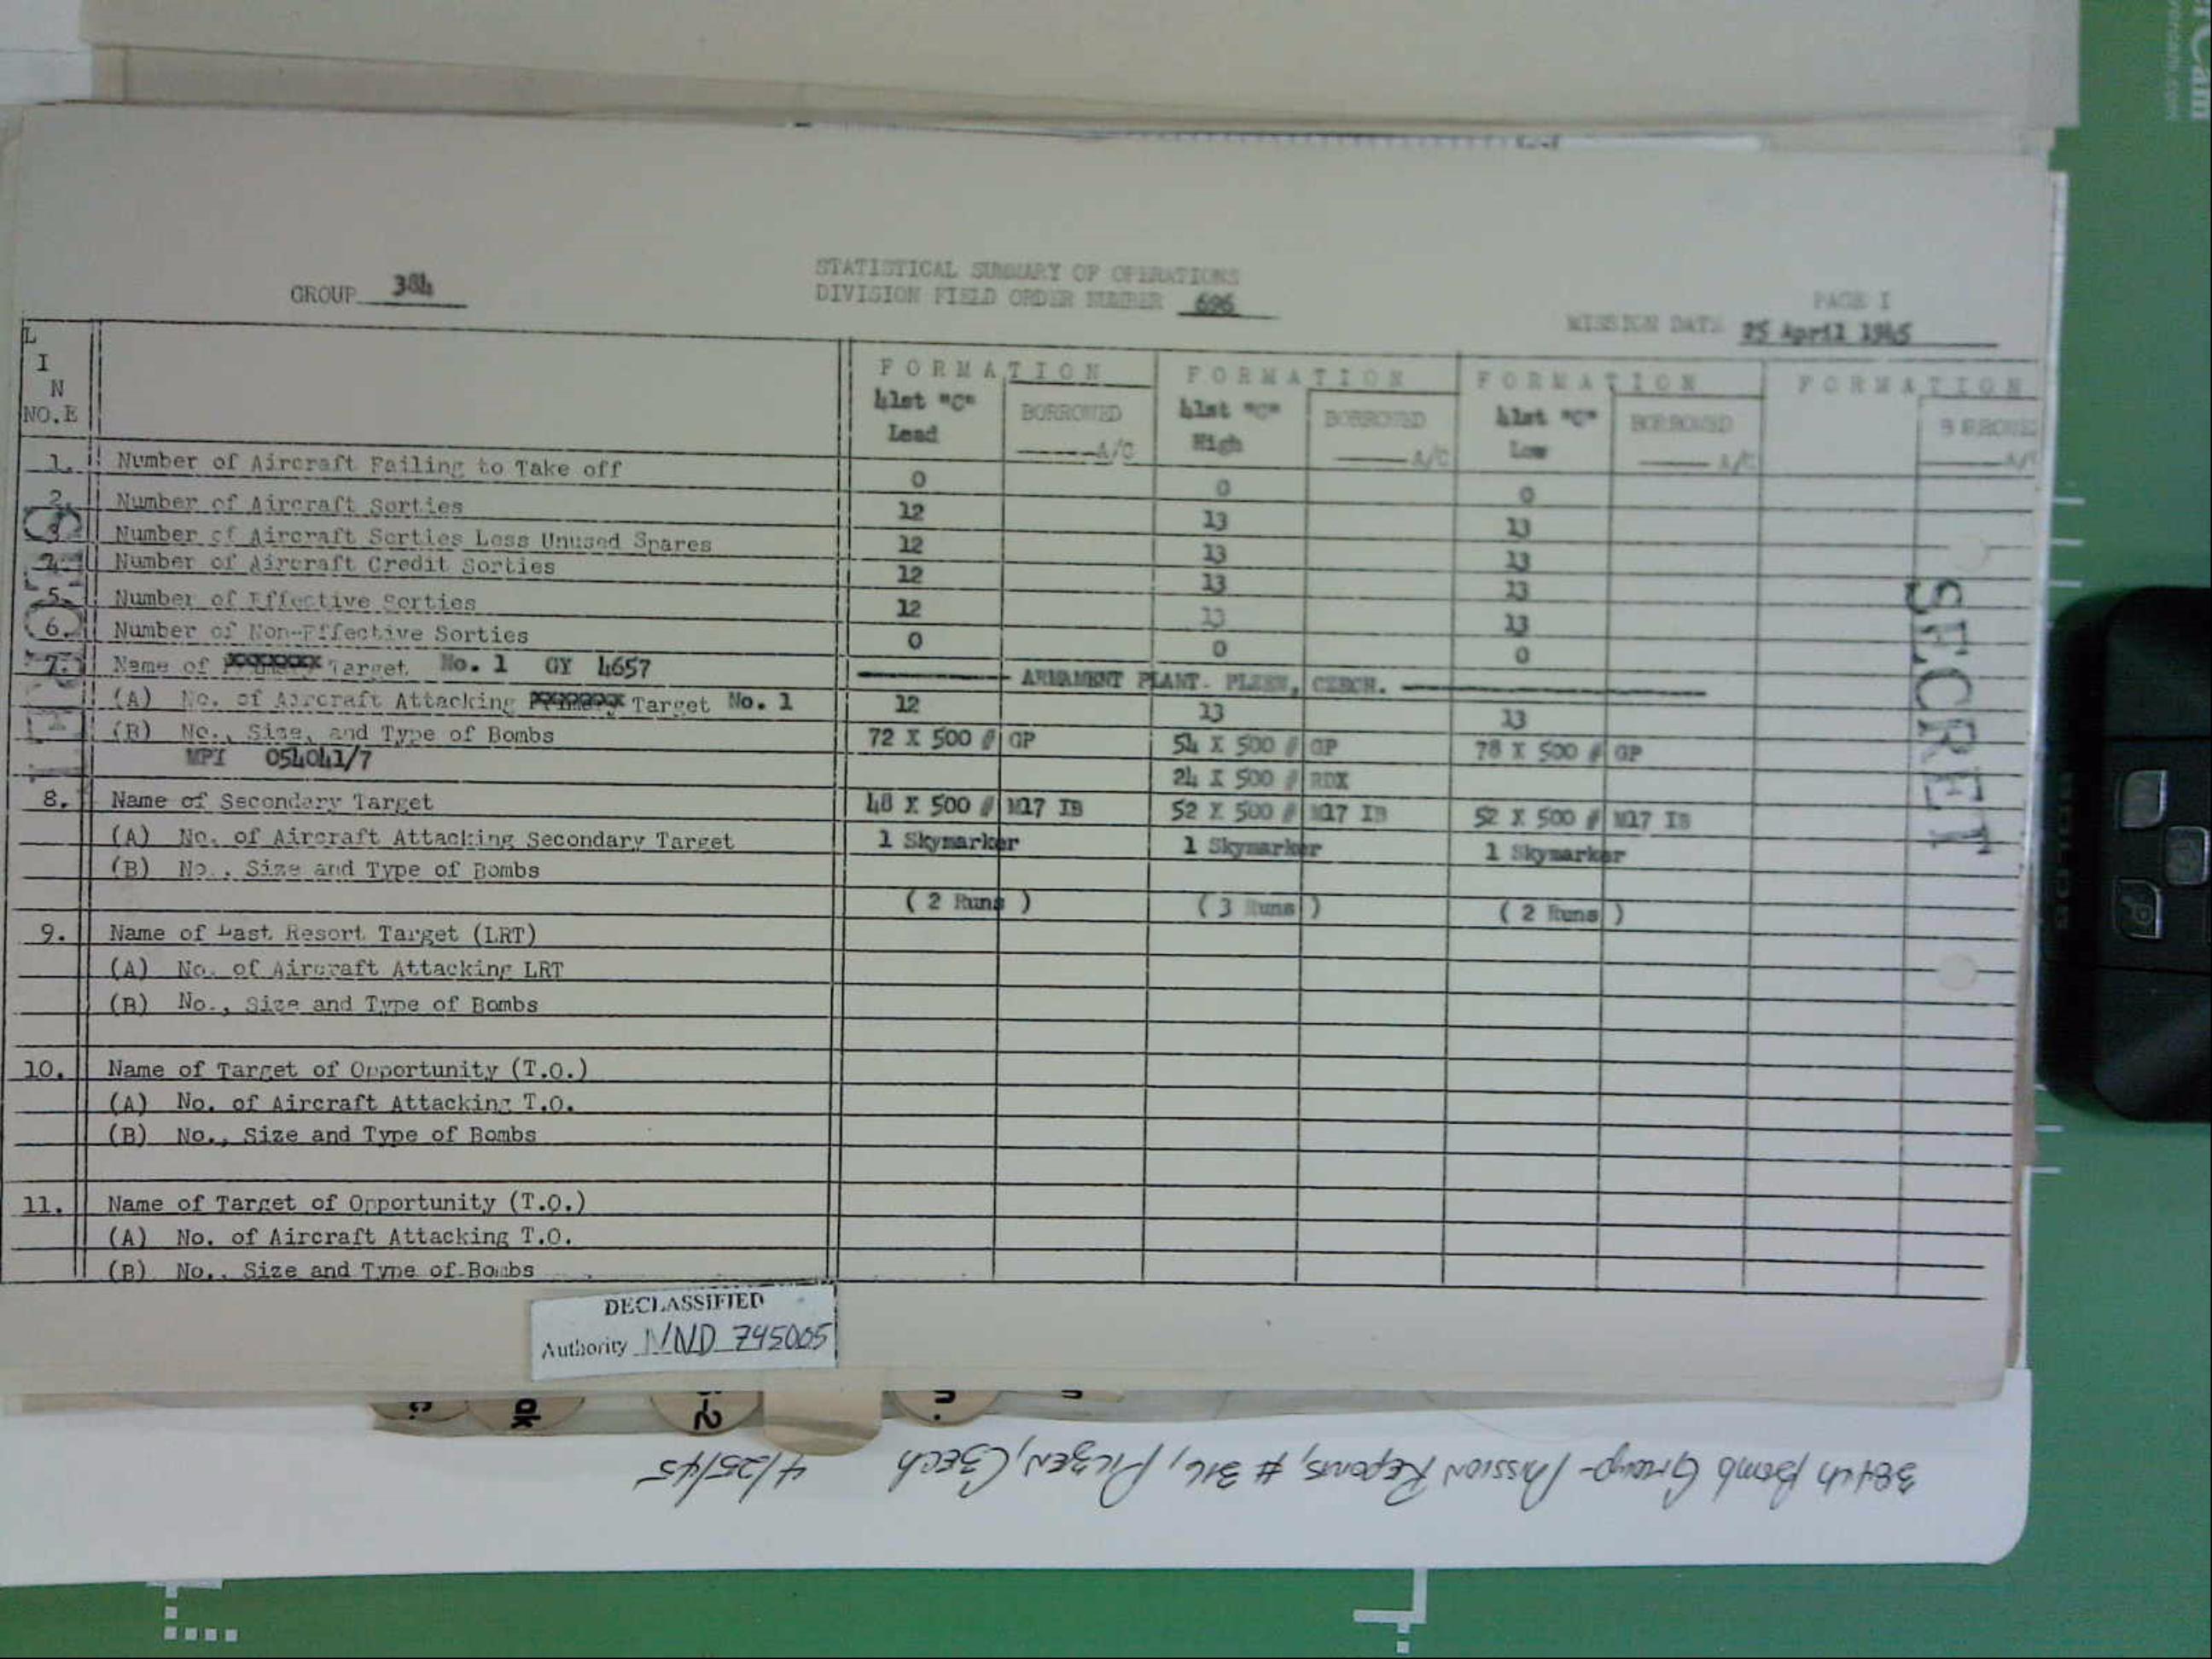 STATISTICAL SUMMARY OF OPERATIONS
GROUP 384 DIVISION FIELD ORDER NUMBER 696 PAGE I
MISSION DATE 25 April 1945
LINE NO.
FORMATION FORMATION FORMATION FORMATION
41st "C" Lead BORROWED A/C 41st "C" High BORROWED A/C 41st "C" Low BORROWED A/C BORROWED A/C
1. Number of Aircraft Failing to Take off 0 0 0
2. Number of Aircraft Sorties 12 13 13
3. Number of Aircraft Sorties Less Unused Spares 12 13 13
4. Number of Aircraft Credit Sorties 12 13 13
5. Number of Effective Sorties 12 13 13
6. Number of Non-Effective Sorties 0 0 0
7. Name of Target No. 1 GY 4657 ARMAMENT PLANT. PLZEN, CZECH.
(A) No. of Aircraft Attacking Target No. 1 12 13 13
(B) No., Size, and Type of Bombs 72 X 500 # GP 54 X 500 # GP 78 X 500 # GP
MPI 054041/7 24 X 500 # RDX
8. Name of Secondary Target 48 X 500 # M17 IB 52 X 500 # M17 IB 52 X 500 # M17 IB
(A) No. of Aircraft Attacking Secondary Target 1 Skymarker 1 Skymarker 1 Skymarker
(B) No., Size and Type of Bombs
( 2 Runs ) ( 3 Runs ) ( 2 Runs )
9. Name of Last Resort Target (LRT)
(A) No. of Aircraft Attacking LRT
(B) No., Size and Type of Bombs
10. Name of Target of Opportunity (T.O.)
(A) No. of Aircraft Attacking T.O.
(B) No., Size and Type of Bombs
11. Name of Target of Opportunity (T.O.)
(A) No. of Aircraft Attacking T.O.
(B) No., Size and Type of Bombs
SECRET
DECLASSIFIED
Authority NND 745005
384th Bomb Group - Mission Reports, # 316, Pilzen, Czech 4/25/45